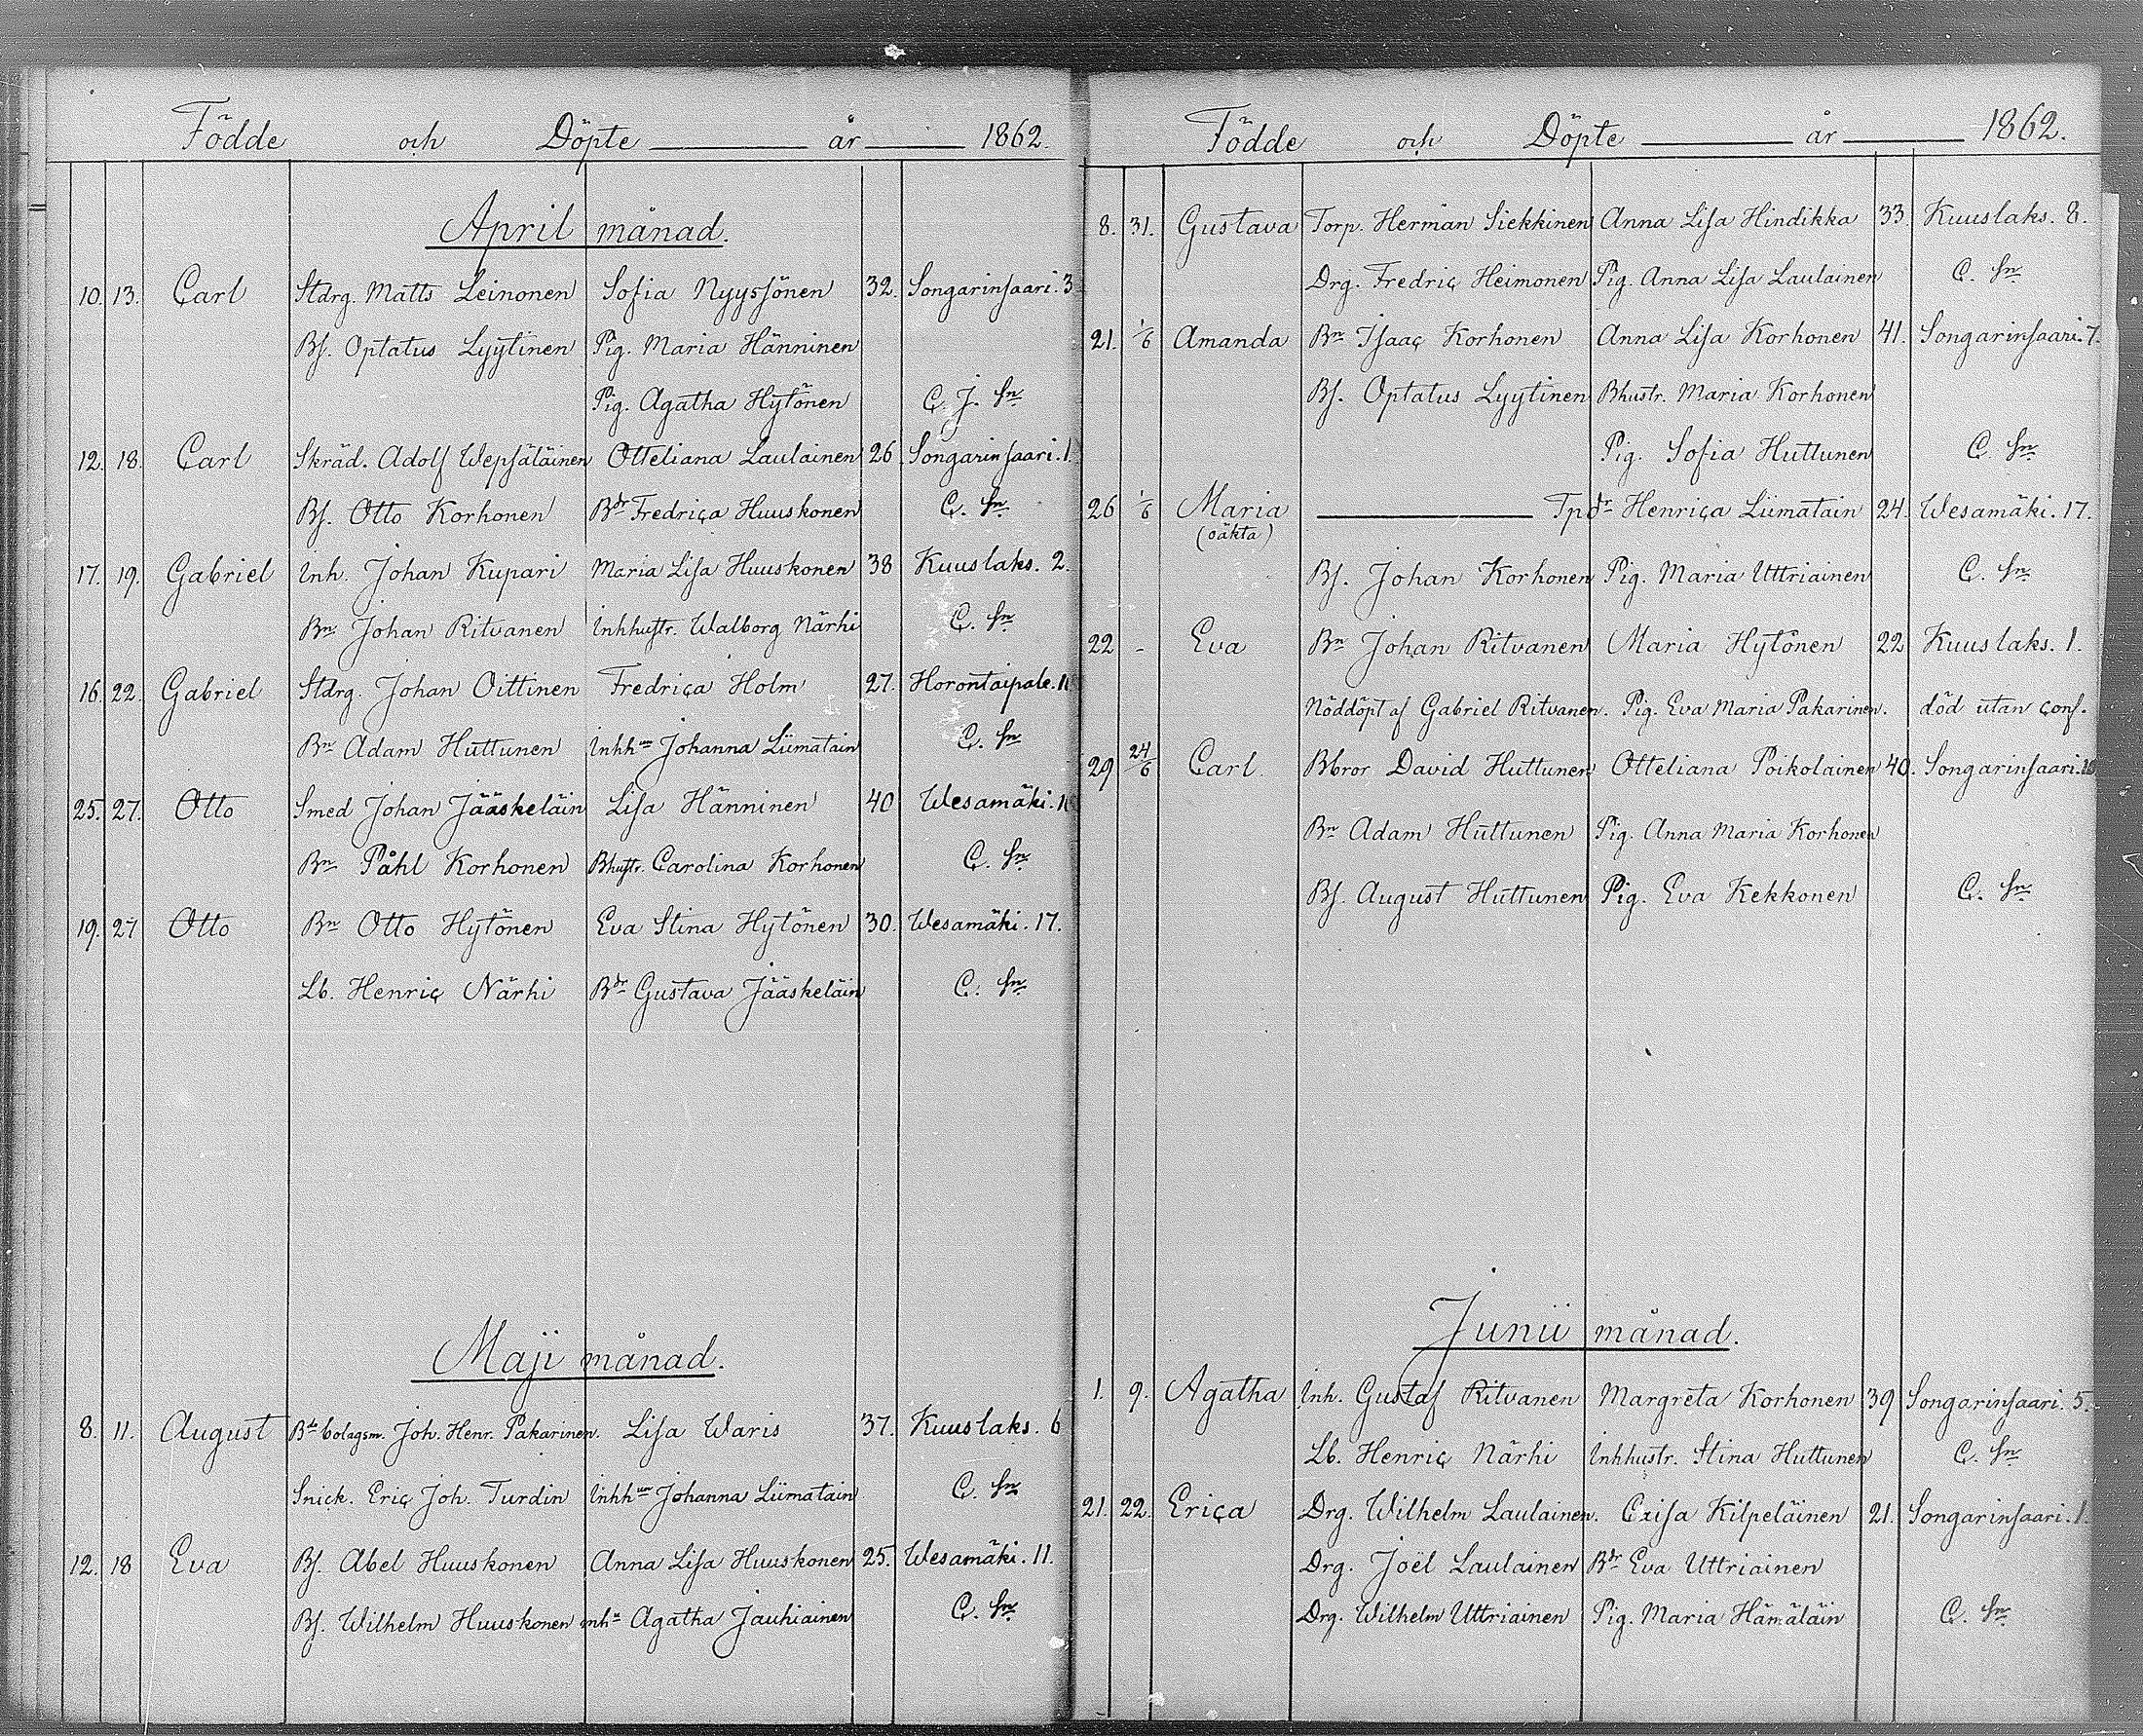 Födde och Döpte år 1862.
April månad.
10. 13. Carl Stdrg. Matts Leinonen Sofia Nyyssönen 32. Songarinsaari. 3
Bs. Optatus Lyytinen Pig. Maria Hänninen
Pig. Agatha Hytönen C. J. Sn
12. 18. Carl Skräd. Adolf Wepsäläinen Otteliana Laulainen 26 Songarinsaari. 1.
Bs. Otto Korhonen Bdr Fredrica Huuskonen C. Sn
17. 19. Gabriel Inh. Johan Kupari Maria Lisa Huuskonen 38 Kuuslaks. 2.
Bn Johan Ritvanen Inhhustr. Walborg Närhi C. Sn
16. 22. Gabriel Stdrg. Johan Oittinen Fredrica Holm 27. Horontaipale.
Bn Adam Huttunen Inhhun Johanna Liimatain C. Sn
25. 27. Otto Smed Johan Jääskeläin Lisa Hänninen 40 Wesamäki.
Bn Påhl Korhonen Bhustr. Carolina Korhonen C. Sn
19. 27 Otto Bn Otto Hytönen Eva Stina Hytönen 30. Wesamäki. 17.
Lb. Henric Närhi Bdr Gustava Jääskeläin C. Sn
Maji månad.
8. 11. August Bde bolagsm. Joh. Henr. Pakarinen. Lisa Waris 37. Kuuslaks. 6
Snick. Eric Joh. Turdin Inhhun Johanna Liimatain C. Sn
12. 18 Eva Bs. Abel Huuskonen Anna Lisa Huuskonen 25. Wesamäki. 11.
Bs. Wilhelm Huuskonen inha Agatha Jauhiainen C. Sn
Födde och Döpte år 1862.
8. 31. Gustava Torp. Herman Siekkinen Anna Lisa Hindikka 33. Kuuslaks. 8.
Drg. Fredric Heimonen Pig. Anna Lisa Laulainen C. Sn
21. 1/6 Amanda Bn Isaac Korhonen Anna Lisa Korhonen 41. Songarinsaari. 7.
Bs. Optatus Lyytinen Bhustr. Maria Korhonen
Pig. Sofia Huttunen C. Sn
26 1/6 Maria Tpdr Henrica Liimatain 24. Wesamäki. 17.
(oäkta)
Bs. Johan Korhonen Pig. Maria Uttriainen C. Sn
22 - Eva Bn Johan Ritvanen Maria Hytönen 22 Kuuslaks. 1.
Nöddöpt af Gabriel Ritvanen. Pig. Eva Maria Pakarinen. död utan conf.
29 24/6 Carl. Bbror David Huttunen Otteliana Poikolainen 40. Songarinsaari. 10
Bn Adam Huttunen Pig. Anna Maria Korhonen
Bs. August Huttunen Pig. Eva Kekkonen C. Sn
Junii månad.
1. 9. Agatha Inh. Gustaf Ritvanen Margreta Korhonen 39 Songarinsaari. 5.
Lb. Henric Närhi Inhhustr. Stina Huttunen C. Sn
21. 22. Erica Drg. Wilhelm Laulainen. Caisa Kilpeläinen 21. Songarinsaari. 1.
Drg. Joël Laulainen Bdr Eva Uttriainen
Drg. Wilhelm Uttriainen Pig. Maria Hämäläin C. Sn